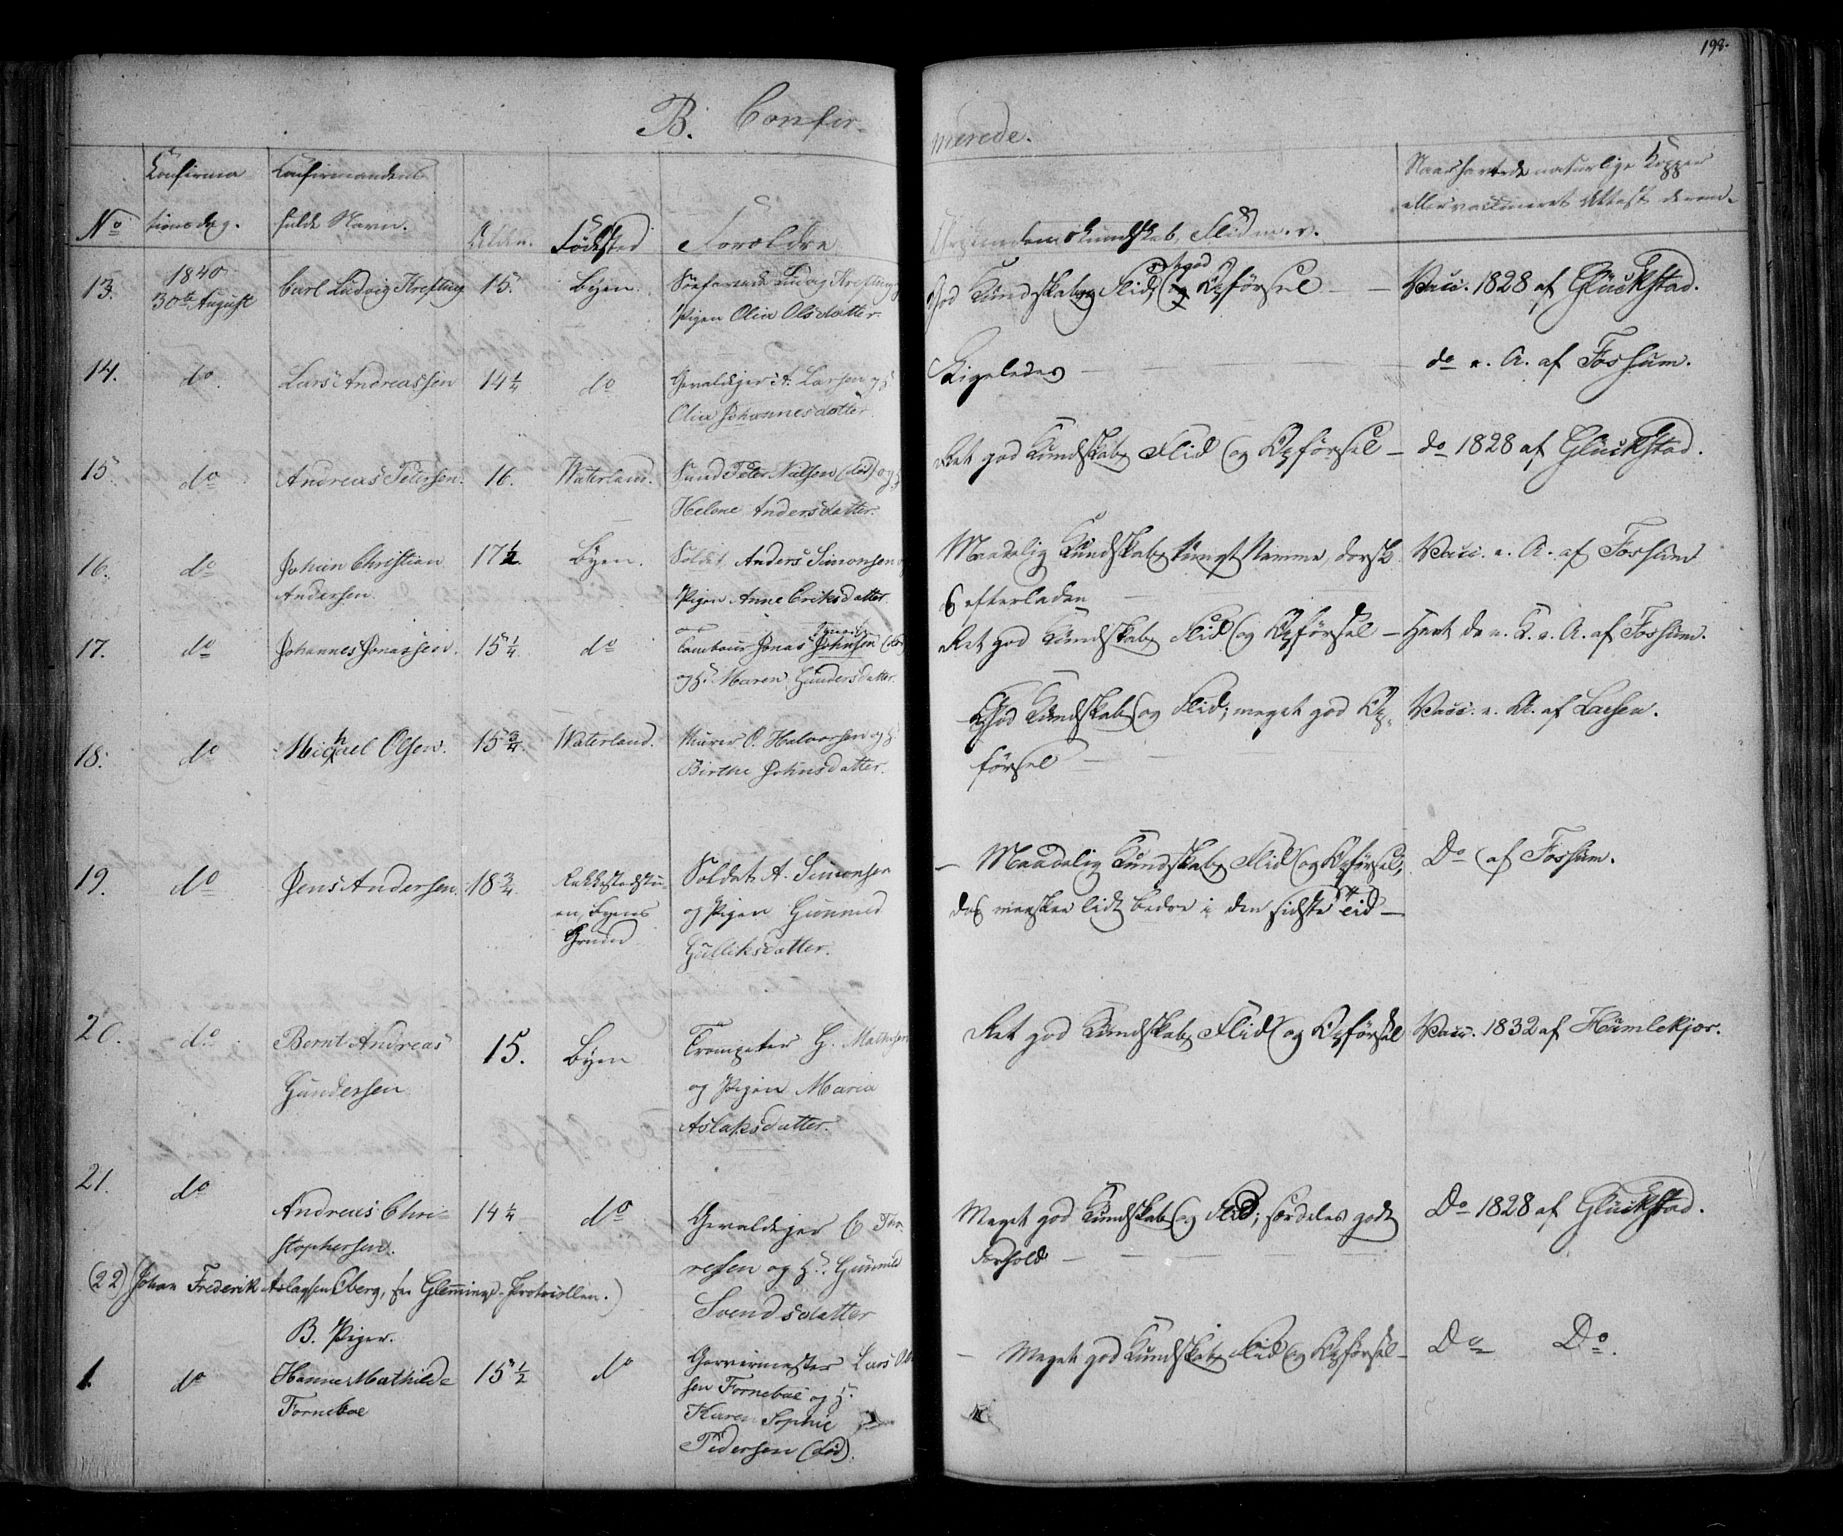 198.
B. Confir-
merede.
No
Confirma
tionsdag.
Confirmandens
fulde Navn.
Alder.
Fødested
Forældre
Kundskab, Flid m. v.
Naar havt de naturlige Kopper
eller vaccineret Attest derom.
13.
1840
30te August
Carl Ludvig Krefting
15.
Byen.
Søefarende Ludvig Krefting og
Pigen Olia Olsdatter.
God Kundskab og Flid, og Opførsel
Vacc. 1828 af Glückstad.
14.
do
Lars Andreassen
14 1/4
do
Gevaldiger A. Larsen og H
Olia Johannesdatter.
Ligeledes
do e. A. af Fossum.
15
do
Andreas Petersen.
16.
Waterland.
Peter Nielsen (død) og H
Helene Andersdatter.
Ret god Kundskab, Flid og Opførsel
do 1828 af Glückstad.
16.
do
Johan Christian
Andersen.
17 1/2
Byen.
Soldat Anders Simonsen
Pigen Anne Eriksdatter.
Maadelig Kundskab,
efterladen
Vacc. e. A. af Fossum
17.
do
Johannes Jonassen.
15 1/4
do
Tambour Jonas Johnsen (død)
og H. Maren Gundersdatter.
Ret god Kundskab, Flid og Opførsel
Havt de n. K. e. A. af Fossum.
18.
do
Michael Olsen.
15 3/4
Waterland.
Murer O. Halvorsen og H
Birthe Johnsdatter.
God Kundskab og Flid; meget god Op-
førsel
Vacc. e. A. af Larsen.
19.
do
Jens Andersen.
18 3/4
Rakkestadstu-
en, Byens
Grund
Soldat A. Simonsen
og Pigen Gunnild
Gulliksdatter.
Maadelig Kundskab, Flid og Opførsel,
dog maaskee lidt bedre i den sidste Tid
Do af Fossum.
20.
do
Bernt Andreas
Gundersen
15.
Byen
Trompeter G. Mathisen
og Pigen Maria
Aslaksdatter.
Ret god Kundskab, Flid og Opførsel
Vacc. 1832 af Humlekjær.
21.
do
Andreas Chri-
stophersen.
14 1/4
do
Gevaldiger C. Tor-
resen og H. Gunnild
Svendsdatter
Meget god Kundskab og Flid; særdeles godt
Forhold
Do 1828 af Glückstad.
(22) Johan Frederik Aslagsen Oberg, see Glemminge-Protocollen.)
B. Piger.
1.
do
Hanne Mathilde
Forneboe
15 1/2
do
Garvermester Lars Ol-
sen Forneboe og H.
Karen Sophie
Pedersen (død).
Meget god Kundskab, Flid og Opførsel
Do Do.